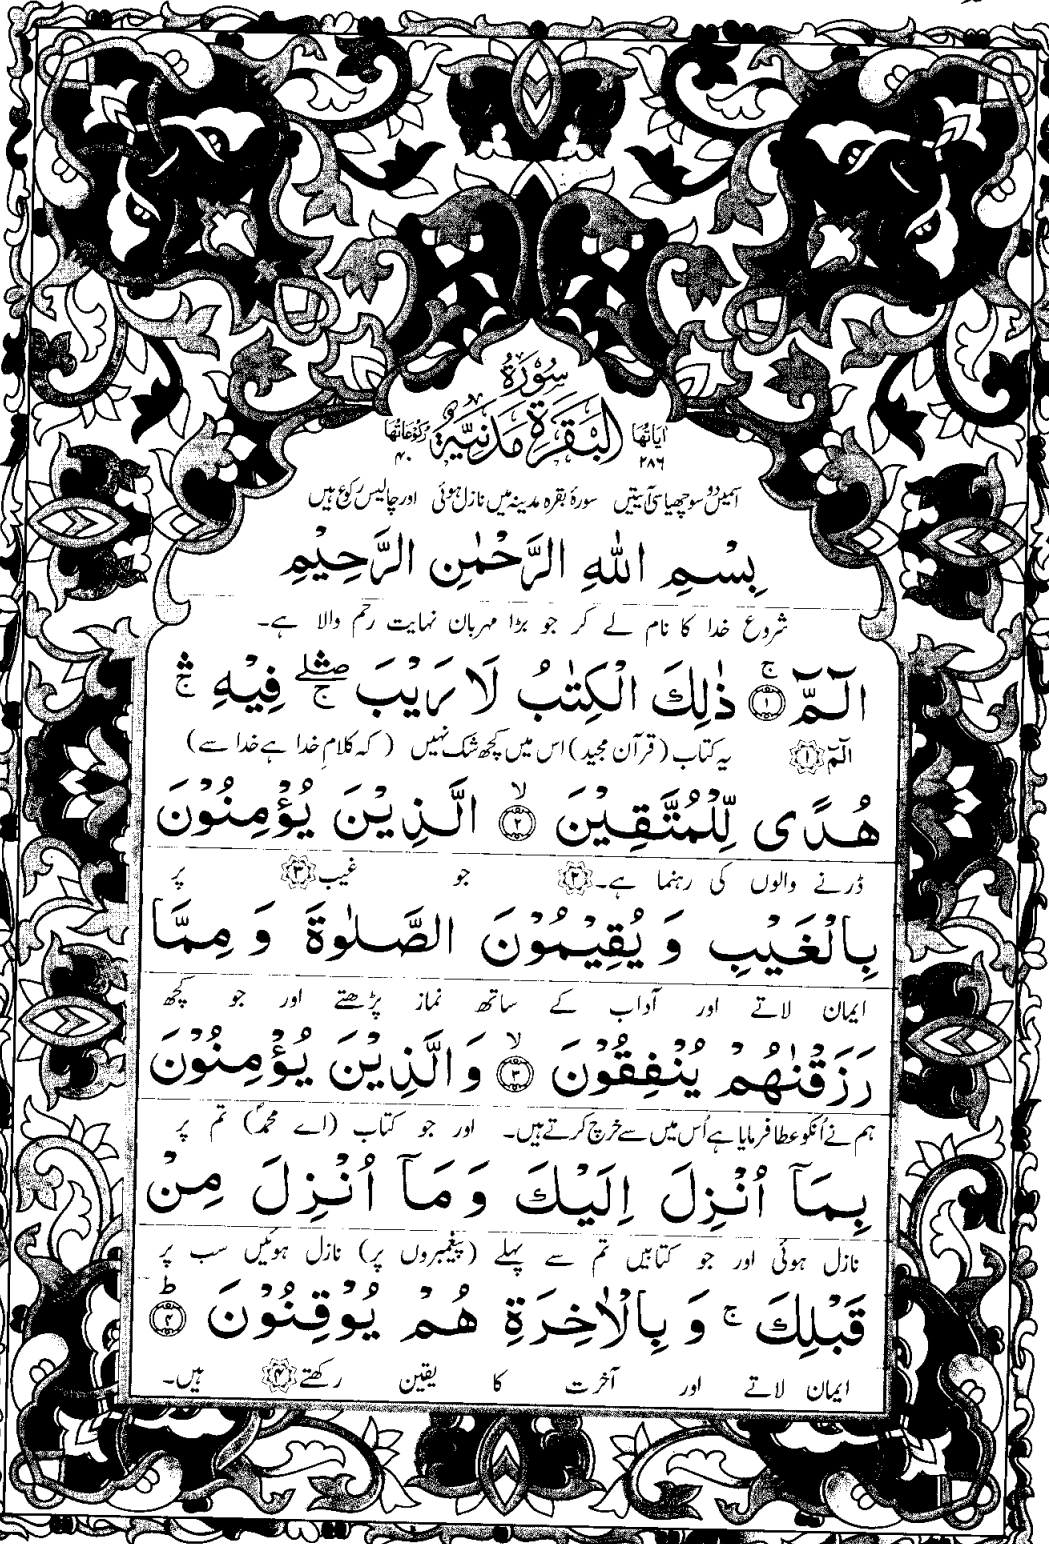 سُوْرَةُ
اٰیَاتُهَا ٢٨٦ الْبَقَرَةِ مَدَنِیَّةٌ رُکُوْعَاتُهَا ٤٠
اسمیں دو سو چھیاسی آیتیں سورۂ بقرہ مدینہ میں نازل ہوئی اور چالیس رکوع ہیں
بِسْمِ اللهِ الرَّحْمٰنِ الرَّحِیْمِ
شروع خدا کا نام لے کر جو بڑا مہربان نہایت رحم والا ہے۔
الٓـمّٓ ۚ﴿۱﴾ ذٰلِكَ الْكِتٰبُ لَا رَیْبَ ۖۛۚ فِیْهِ ۛۚ
الٓمٓ ﴿۱﴾ یہ کتاب (قرآن مجید) اس میں کچھ شک نہیں (کہ کلامِ خدا ہے خدا سے)
هُدًی لِّلْمُتَّقِیْنَ ۙ﴿۲﴾ الَّذِیْنَ یُؤْمِنُوْنَ
ڈرنے والوں کی رہنما ہے۔﴿۲﴾ جو غیب﴿۳﴾ پر
بِالْغَیْبِ وَ یُقِیْمُوْنَ الصَّلٰوةَ وَ مِمَّا
ایمان لاتے اور آداب کے ساتھ نماز پڑھتے اور جو کچھ
رَزَقْنٰهُمْ یُنْفِقُوْنَ ۙ﴿۳﴾ وَالَّذِیْنَ یُؤْمِنُوْنَ
ہم نے اُنکو عطا فرمایا ہے اُس میں سے خرچ کرتے ہیں۔ اور جو کتاب (اے محمدؐ) تم پر
بِمَاۤ اُنْزِلَ اِلَیْكَ وَ مَاۤ اُنْزِلَ مِنْ
نازل ہوئی اور جو کتابیں تم سے پہلے (پیغمبروں پر) نازل ہوئیں سب پر
قَبْلِكَ ۚ وَ بِالْاٰخِرَةِ هُمْ یُوْقِنُوْنَ ؕ﴿۴﴾
ایمان لاتے اور آخرت کا یقین رکھتے﴿۴﴾ ہیں۔